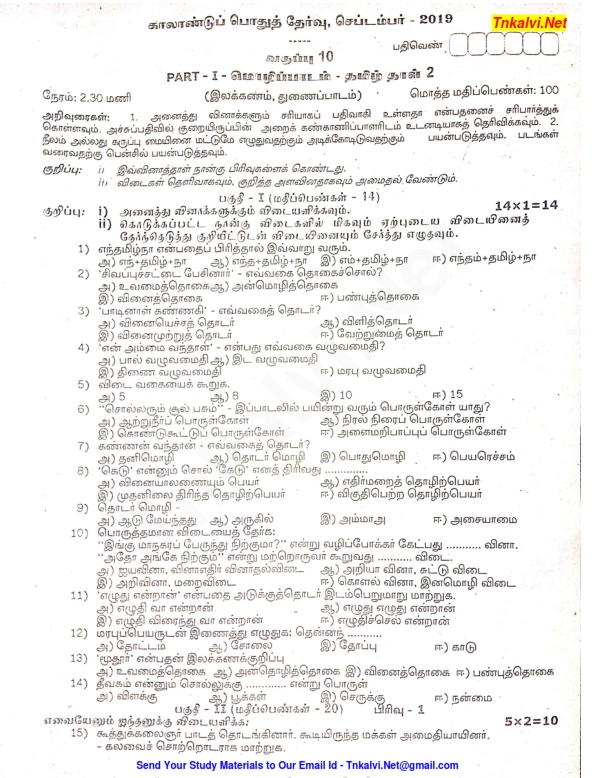 காலாண்டுப் பொதுத் தேர்வு, செப்டம்பர் - 2019
Tnkalvi.Net
-----
வகுப்பு 10
பதிவெண்.
PART - I - மொழிப்பாடம் - தமிழ் தாள் 2
நேரம்: 2.30 மணி (இலக்கணம், துணைப்பாடம்) மொத்த மதிப்பெண்கள்: 100
அறிவுரைகள்: 1. அனைத்து வினாக்களும் சரியாகப் பதிவாகி உள்ளதா என்பதனைச் சரிபார்த்துக்
கொள்ளவும். அச்சுப்பதிவில் குறையிருப்பின் அறைக் கண்காணிப்பாளரிடம் உடனடியாகத் தெரிவிக்கவும். 2.
நீலம் அல்லது கருப்பு மையினை மட்டுமே எழுதுவதற்கும் அடிக்கோடிடுவதற்கும் பயன்படுத்தவும். படங்கள்
வரைவதற்கு பென்சில் பயன்படுத்தவும்.
குறிப்பு: i) இவ்வினாத்தாள் நான்கு பிரிவுகளைக் கொண்டது.
ii) விடைகள் தெளிவாகவும், குறித்த அளவினதாகவும் அமைதல் வேண்டும்.
பகுதி - I (மதிப்பெண்கள் - 14)
14×1=14
குறிப்பு: i) அனைத்து வினாக்களுக்கும் விடையளிக்கவும்.
ii) கொடுக்கப்பட்ட நான்கு விடைகளில் மிகவும் ஏற்புடைய விடையினைத்
தேர்ந்தெடுத்து குறியீட்டுடன் விடையினையும் சேர்த்து எழுதவும்.
1) எந்தமிழ்நா என்பதைப் பிரித்தால் இவ்வாறு வரும்.
அ) எந்+தமிழ்+நா ஆ) எந்த+தமிழ்+நா இ) எம்+தமிழ்+நா ஈ) எந்தம்+தமிழ்+நா
2) 'சிவப்புச்சட்டை பேசினார்' - எவ்வகை தொகைச்சொல்?
அ) உவமைத்தொகை ஆ) அன்மொழித்தொகை
இ) வினைத்தொகை ஈ) பண்புத்தொகை
3) 'பாடினாள் கண்ணகி' - எவ்வகைத் தொடர்?
அ) வினையெச்சத் தொடர் ஆ) விளித்தொடர்
இ) வினைமுற்றுத் தொடர் ஈ) வேற்றுமைத் தொடர்
4) 'என் அம்மை வந்தாள்' - என்பது எவ்வகை வழுவமைதி?
அ) பால் வழுவமைதி ஆ) இட வழுவமைதி
இ) திணை வழுவமைதி ஈ) மரபு வழுவமைதி
5) விடை வகையைக் கூறுக.
அ) 5 ஆ) 8 இ) 10 ஈ) 15
6) "சொல்லரும் சூல் பசும்" - இப்பாடலில் பயின்று வரும் பொருள்கோள் யாது?
அ) ஆற்றுநீர்ப் பொருள்கோள் ஆ) நிரல் நிரைப் பொருள்கோள்
இ) கொண்டுகூட்டுப் பொருள்கோள் ஈ) அளைமறிபாப்புப் பொருள்கோள்
7) கண்ணன் வந்தான் - எவ்வகைத் தொடர்?
அ) தனிமொழி ஆ) தொடர் மொழி இ) பொதுமொழி ஈ) பெயரெச்சம்
8) 'கெடு' என்னும் சொல் 'கேடு' எனத் திரிவது .............
அ) வினையாலணையும் பெயர் ஆ) எதிர்மறைத் தொழிற்பெயர்
இ) முதனிலை திரிந்த தொழிற்பெயர் ஈ) விகுதிபெற்ற தொழிற்பெயர்
9) தொடர் மொழி -
அ) ஆடு மேய்ந்தது ஆ) அருகில் இ) அம்மாஅ ஈ) அசையாமை
10) பொருத்தமான விடையைத் தேர்க:
"இங்கு மாநகரப் பேருந்து நிற்குமா?" என்று வழிப்போக்கர் கேட்பது .......... வினா.
"அதோ அங்கே நிற்கும்" என்று மற்றொருவர் கூறுவது ........... விடை.
அ) ஐயவினா, வினாஎதிர் வினாதல்விடை ஆ) அறியா வினா, சுட்டு விடை
இ) அறிவினா, மறைவிடை ஈ) கொளல் வினா, இனமொழி விடை
11) 'எழுது என்றான்' என்பதை அடுக்குத்தொடர் இடம்பெறுமாறு மாற்றுக.
அ) எழுதி வா என்றான் ஆ) எழுது எழுது என்றான்
இ) எழுதி விரைந்து வா என்றான் ஈ) எழுதிச்செல் என்றான்
12) மரபுப்பெயருடன் இணைத்து எழுதுக: தென்னந் ...........
அ) தோட்டம் ஆ) சோலை இ) தோப்பு ஈ) காடு
13) 'மூதூர்' என்பதன் இலக்கணக்குறிப்பு
அ) உவமைத்தொகை ஆ) அன்மொழித்தொகை இ) வினைத்தொகை ஈ) பண்புத்தொகை
14) தீவகம் என்னும் சொல்லுக்கு ............ என்று பொருள்
அ) விளக்கு ஆ) பூக்கள் இ) செருக்கு ஈ) நன்மை
பகுதி - II (மதிப்பெண்கள் - 20) பிரிவு - 1
எவையேனும் ஐந்தனுக்கு விடையளிக்க: 5×2=10
15) கூத்துக்கலைஞர் பாடத் தொடங்கினார். கூடியிருந்த மக்கள் அமைதியாயினர்.
- கலவைச் சொற்றொடராக மாற்றுக.
Send Your Study Materials to Our Email Id - Tnkalvi.Net@gmail.com